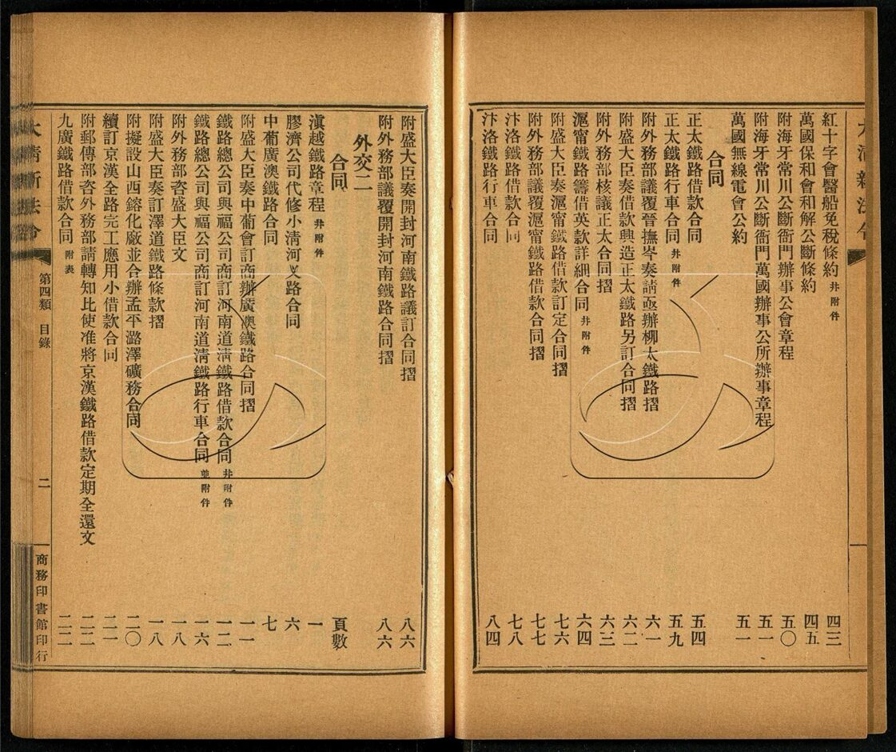 大清新法令
紅十字會醫船免稅條約 幷附件 四三
萬國保和會和解公斷條約 四五
附海牙常川公斷衙門辦事公會章程 五〇
附海牙常川公斷衙門萬國辦事公所辦事章程 五一
萬國無線電會公約 五一
合同
正太鐵路借款合同 五四
正太鐵路行車合同 幷附件 五九
附外務部議覆晉撫岑奏請亟辦柳太鐵路摺 六一
附盛大臣奏借款興造正太鐵路另訂合同摺 六二
附外務部核議正太合同摺 六三
滬甯鐵路籌借英款詳細合同 幷附件 六四
附盛大臣奏滬甯鐵路借款訂定合同摺 七六
附外務部議覆滬甯鐵路借款合同摺 七七
汴洛鐵路借款合同 七八
汴洛鐵路行車合同 八四
附盛大臣奏開封河南鐵路議訂合同摺 八六
附外務部議覆開封河南鐵路合同摺 八六
外交二
合同 頁數
滇越鐵路章程 幷附件 一
膠濟公司代修小清河叉路合同 六
中葡廣澳鐵路合同 七
附盛大臣奏中葡會訂商辦廣澳鐵路合同摺 一一
鐵路總公司與福公司商訂河南道淸鐵路借款合同 幷附件 一二
鐵路總公司與福公司商訂河南道淸鐵路行車合同 並附件 一六
附外務部咨盛大臣文 一八
附盛大臣奏訂澤道鐵路條款摺 一八
附擬設山西鎔化廠並合辦孟平潞澤礦務合同 二〇
續訂京漢全路完工應用小借款合同 二一
附郵傳部咨外務部請轉知比使准將京漢鐵路借款定期全還文 二二
九廣鐵路借款合同 附表 二二
大清新法令 第四類 目錄 二 商務印書館印行